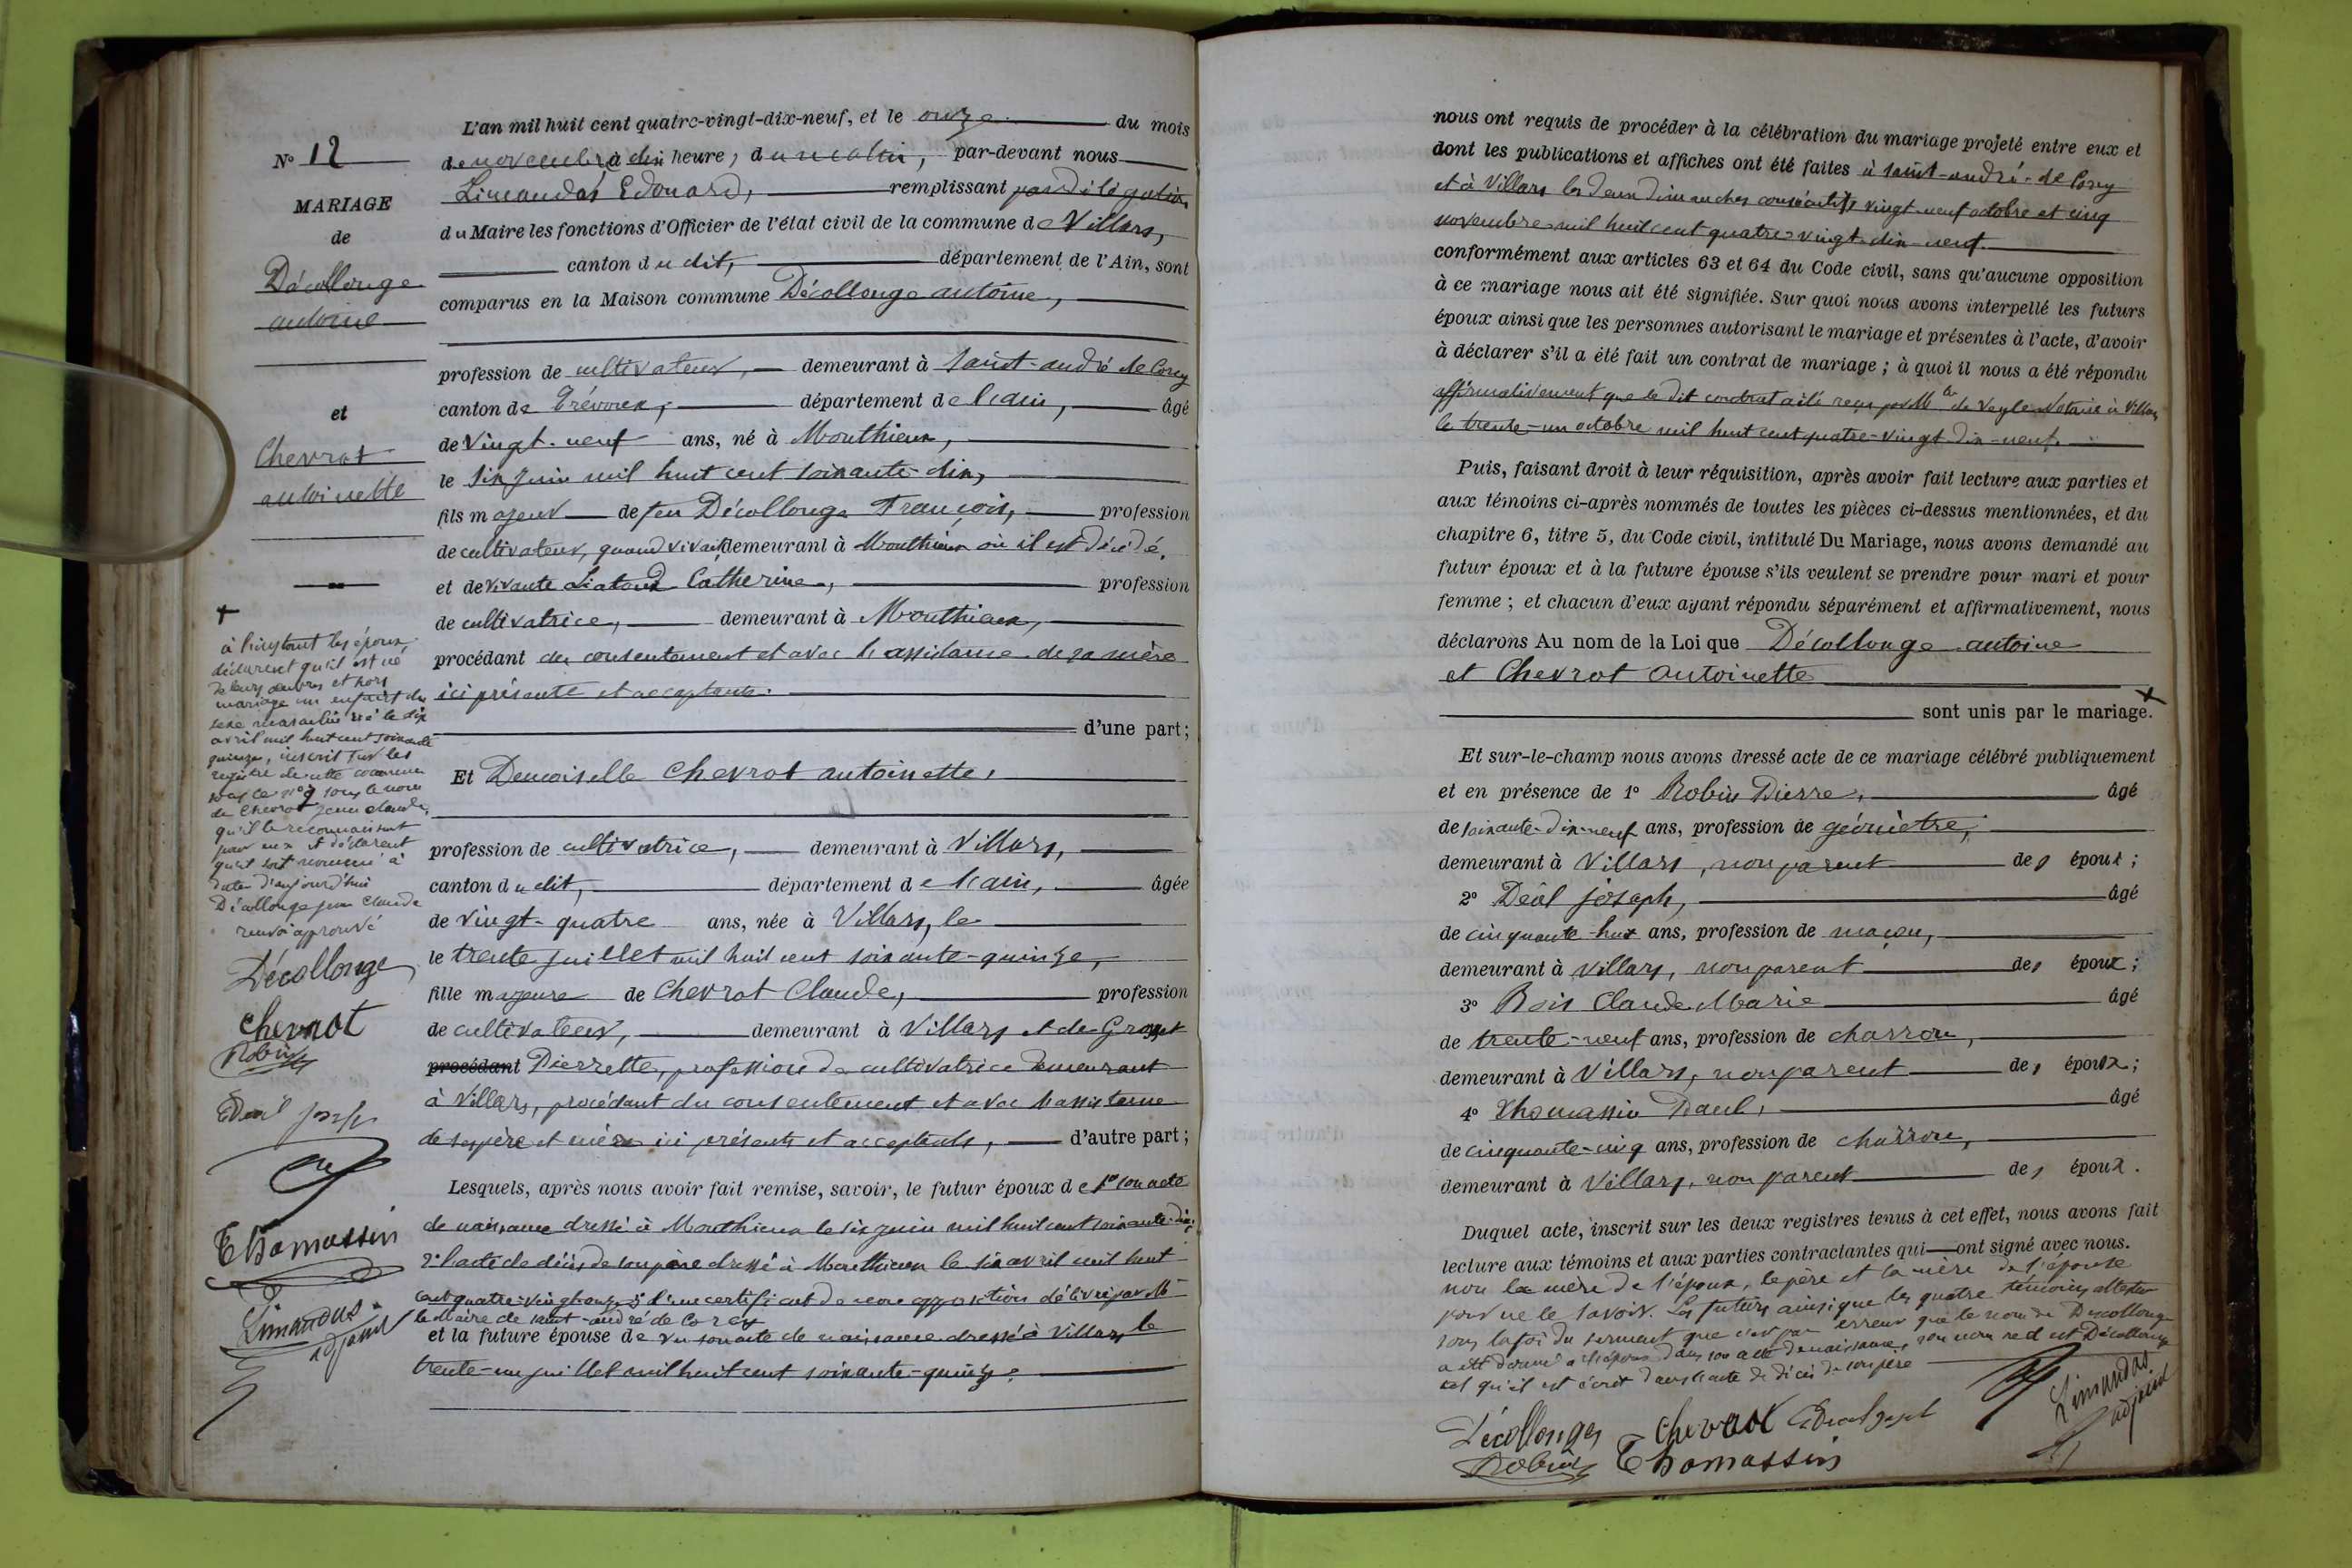 N° 12
MARIAGE
de
Décollonge
antoine
et
Chevrot
antoinette
L'an mil huit cent quatre-vingt-dix-neuf, et le onze du mois
de novembre à dix heures, du matin, par-devant nous
Limandas Edouard, remplissant par délégation
du Maire les fonctions d'Officier de l'état civil de la commune de Villars,
canton du dit, département de l'Ain, sont
comparus en la Maison commune Décollonge antoine,
profession de cultivateur, demeurant à Saint-andré de Corcy
canton de Trévoux, département de l'ain, âgé
de Vingt-neuf ans, né à Monthieux,
le six juin mil huit cent soixante-dix,
fils majeur de feu Décollonge François, profession
de cultivateur, quand vivait demeurant à Monthieux où il est décédé,
et de vivante Liatoud Catherine, profession
de cultivatrice, demeurant à Monthieux,
procédant du consentement et avec l'assistance de sa mère
ici présente et acceptante.
d'une part;
Et Demoiselle Chevrot antoinette,
profession de cultivatrice, demeurant à Villars,
canton du dit, département de l'ain, âgée
de vingt-quatre ans, née à Villars, le
le trente juillet mil huit cent soixante-quinze,
fille majeure de Chevrot Claude, profession
de cultivateur, demeurant à Villars et de
procédant Pierrette, profession de cultivatrice demeurant
à Villars, procédant du consentement et avec l'assistance
de ses père et mère ici présents et acceptants, d'autre part;
Lesquels, après nous avoir fait remise, savoir, le futur époux de 1° son acte
de naissance dressé à Monthieux le six juin mil huit cent soixante-dix;
2° l'acte de décès de son père dressé à Monthieux le six avril mil huit
cent quatre-vingt-onze 3° d'un certificat de non opposition délivré par Mr
le Maire de saint-andré de Corcy
et la future épouse de vu son acte de naissance dressé à Villars le
trente-un juillet mil huit cent soixante-quinze.
+
à l'instant les époux,
déclarent qu'il est né
de leurs œuvres et hors
mariage un enfant du
sexe masculin né le dix
avril mil huit cent soixante
quinze, inscrit sur les
registre de cette commune
sous le n° 9 sous le nom
de Chevrot jean claude,
qu'il le reconnaissent
pour eux et déclarent
qu'il soit nommé à
dater d'aujourd'hui
Décollonge jean Claude
renvoi approuvé
Décollonge
chevrot
Robin
Déal joseph
Thomassin
Limandas
adjoint
nous ont requis de procéder à la célébration du mariage projeté entre eux et
dont les publications et affiches ont été faites à saint-andré-de Corcy
et à Villars les deux dimanches consécutifs vingt-neuf octobre et cinq
novembre mil huit cent quatre-vingt-dix-neuf.
conformément aux articles 63 et 64 du Code civil, sans qu'aucune opposition
à ce mariage nous ait été signifiée. Sur quoi nous avons interpellé les futurs
époux ainsi que les personnes autorisant le mariage et présentes à l'acte, d'avoir
à déclarer s'il a été fait un contrat de mariage ; à quoi il nous a été répondu
affirmativement que le dit contrat a été reçu par Me de Veyle Notaire à Villars
le trente-un octobre mil huit cent quatre-vingt dix-neuf.
Puis, faisant droit à leur réquisition, après avoir fait lecture aux parties et
aux témoins ci-après nommés de toutes les pièces ci-dessus mentionnées, et du
chapitre 6, titre 5, du Code civil, intitulé Du Mariage, nous avons demandé au
futur époux et à la future épouse s'ils veulent se prendre pour mari et pour
femme ; et chacun d'eux ayant répondu séparément et affirmativement, nous
déclarons Au nom de la Loi que Décollonge antoine
et Chevrot antoinette
+
sont unis par le mariage.
Et sur-le-champ nous avons dressé acte de ce mariage célébré publiquement
et en présence de 1° Robin Pierre, âgé
de soixante-dix-neuf ans, profession de géomètre,
demeurant à Villars, non parent des époux;
2° Déal joseph, âgé
de cinquante-huit ans, profession de maçon,
demeurant à Villars, non parent des époux;
3° Claude Marie âgé
de trente-neuf ans, profession de charron,
demeurant à Villars, non parent des époux;
4° Thomassin Paul, âgé
de cinquante-cinq ans, profession de charron,
demeurant à Villars, non parent des époux.
Duquel acte, inscrit sur les deux registres tenus à cet effet, nous avons fait
lecture aux témoins et aux parties contractantes qui ont signé avec nous.
non la mère de l'époux, le père et la mère de l'épouse
pour ne le savoir. Les futurs ainsi que les quatre témoins attestent
sous la foi du serment que c'est par erreur que le nom de Descollonge
a été donné à l'époux dans son acte de naissance, son nom réel est Décollonge
tel qu'il est écrit dans l'acte de décès de son père
Décollonges chevrot Déal joseph
Robin Thomassin
Limandas
adjoint